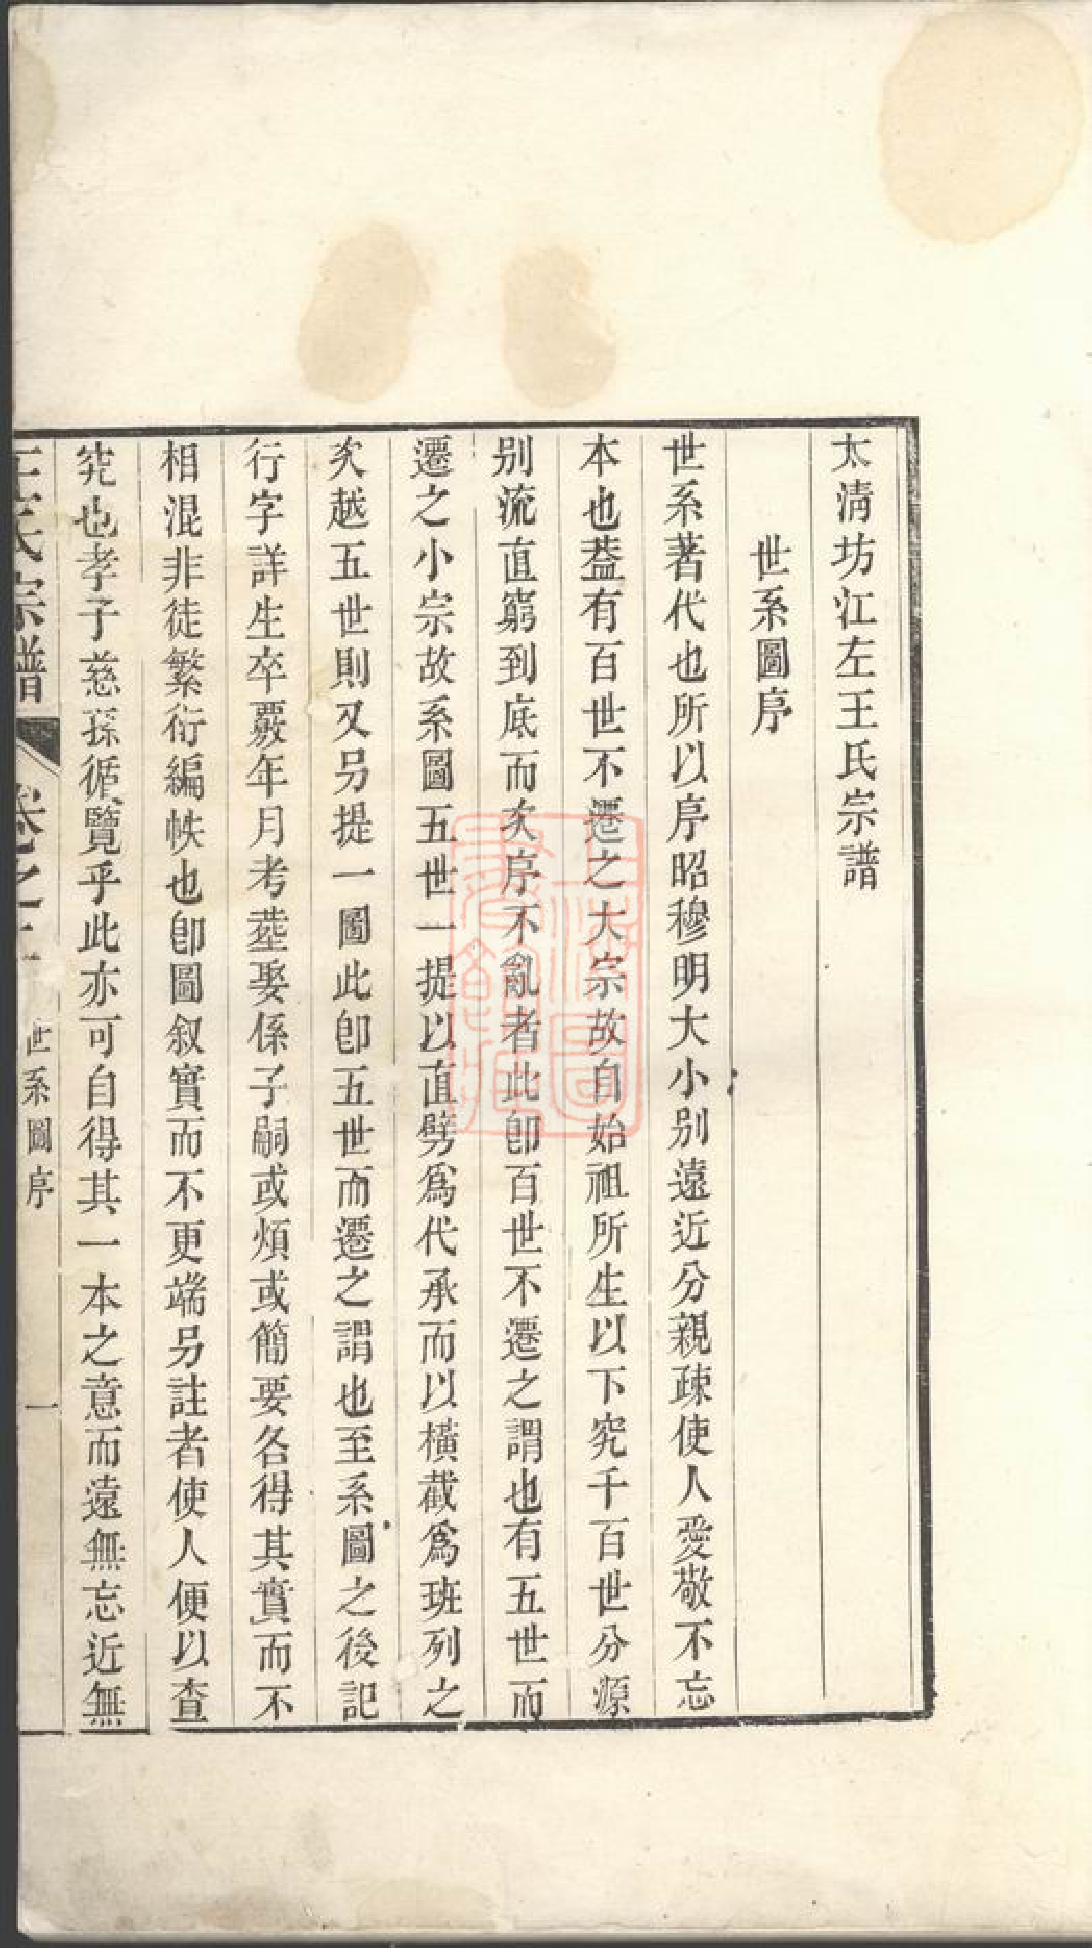 太淸坊江左王氏宗譜
世系圖序
世系著代也所以序昭穆明大小别遠近分親疎使人愛敬不忘
本也葢有百世不遷之大宗故自始祖所生以下究千百世分源
别流直窮到底而友序不亂者此卽百世不遷之謂也有五世而
遷之小宗故系圖五世一提以直劈爲代承而以橫截爲班列之
友越五世則又另提一圖此卽五世而遷之謂也至系圖之後記
行字詳生卒覈年月考塟娶係子嗣或煩或簡要各得其實而不
相混非徒繁衍編帙也卽圖叙實而不更端另註者使人便以查
究也孝子慈孫循覽乎此亦可自得其一本之意而遠無忘近無
王氏宗譜
卷之
世系圖序
一